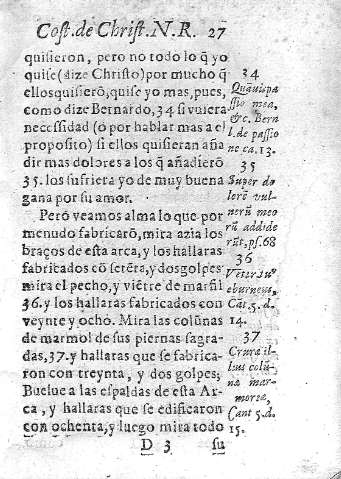 Cost. de Christ. N. R. 27
quisieron, pero no todo lo q̃ yo
quise (dize Christo) por mucho q̃
ellos quisierõ, quise yo mas, pues,
como dize Bernardo, 34 si vuiera
necessidad (o por hablar mas a el
proposito) si ellos quisieran aña
dir mas dolores a los q̃ añadierõ
35. los sufriera yo de muy buena
gana por su amor.
Però veamos alma lo que por
menudo fabricarõ, mira azia los
braços de esta arca, y los hallaras
fabricados cõ setẽta, y dos golpes
mira el pecho, y viẽtre de marfil
36. y los hallaras fabricados con
veynte y ocho. Mira las colũnas
de marmol de sus piernas sagra-
das, 37. y hallaras que se fabrica-
ron con treynta, y dos golpes;
Buelue a las espaldas de esta Ar-
ca, y hallaras que se edificaron
con ochenta, y luego mira todo
D 3 su
34
ssio mea,
&c. Bern
l. de passio
ne ca. 13.
35
Super do
lorẽ vul-
nerũ meo
rũ addide
rũt, ps. 68
36
Vẽter
eburneus,
Cãt. 5. d.
14.
37
Crura il-
lius colũ-
na mar-
morea,
Cant 5. d.
15.